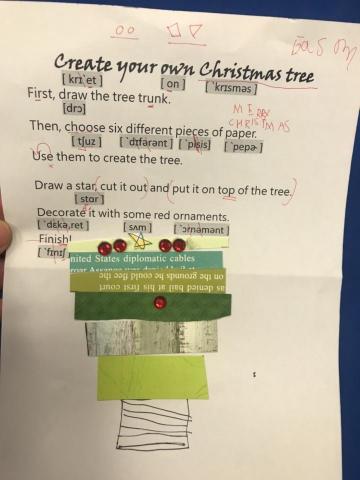 Create your own Christmas tree
[ krɪˋet ] [ on ] [ ˋkrɪsməs ]
First, draw the tree trunk.
[drɔ]
MERRY
CHRISTMAS
Then, choose six different pieces of paper.
[tʃuz] [ˋdɪfərənt] [ˋpisɪs] [ˋpepɚ]
Use them to create the tree.
Draw a star, (cut it out) and (put it on top of the tree.)
[ stɑr ]
Decorate it with some red ornaments.
[ˋdɛkə,ret] [sʌm] [ˋɔrnəmənt]
Finish!
[ˋfɪnɪʃ
United States diplomatic cables
on the grounds he could flee the
as denied bail at his first court